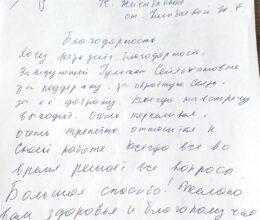 К. Жисибаевой
от
Благодарность
Хочу выразить благодарность,
Заведующей Гулжан Сейлхановне
за поддержку, за обратную связь,
за её доброту. Всегда на встречу
выходит. Очень
очень трепетно относится к
своей работе. Всегда все во
время решает все вопросы.
Большая спосибо! Желаю
вам здоровья и благополучая